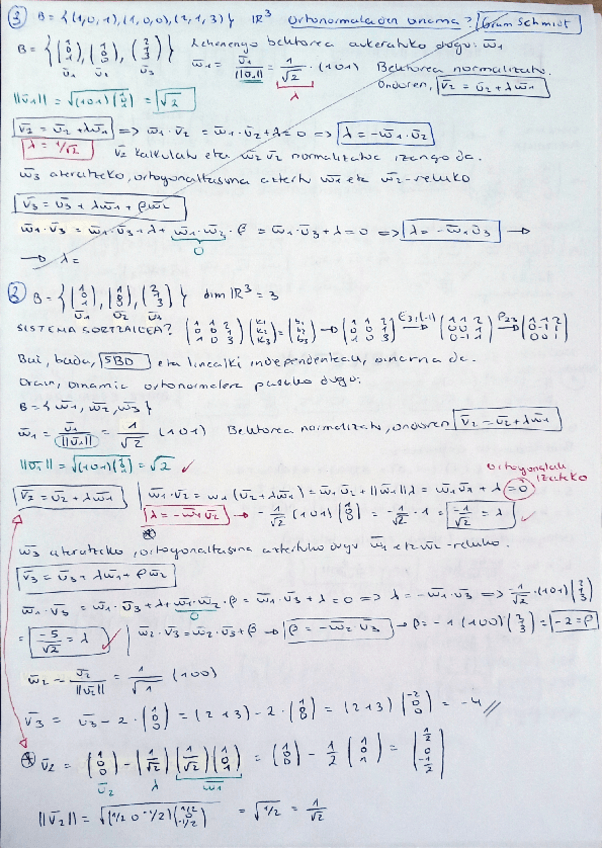 ③ B = {(1,0,1),(1,0,0),(2,1,3)} ℝ³ Ortonormala den oinarria? Gram Schmidt
B = {(1 0 1), (1 0 0), (2 1 3)} Lehenengo bektorea aukeratuko dugu: w̄1
v̄1 v̄2 v̄3 w̄1 = v̄1/||v̄1|| = 1/√2 · (101) Bektorea normalizatu.
λ Ondoren, v̄2 = v̄2 + λw̄1
||v̄1|| = √(101)(1 0 1) = √2
v̄2 = v̄2 + λw̄1 => w̄1·v̄2 = w̄1·v̄2 + λ = 0 => λ = -w̄1·v̄2
λ = 1/√2 v̄2 kalkulatu eta w̄2 v̄2 normalizatua izango da.
w̄3 ateratzeko, ortogonaltasuna aztertu w̄1 eta w̄2-rekiko
v̄3 = v̄3 + λw̄1 + βw̄2
w̄1·v̄3 = w̄1·v̄3 + λ + w̄1·w̄2·β = w̄1·v̄3 + λ = 0 => λ = -w̄1v̄3 →
0
→ λ =
③ B = {(1 0 1), (1 0 0), (2 1 3)} dim ℝ³ = 3
v̄1 v̄2 v̄3
SISTEMA SORTZAILEA? (1 1 2 / 0 0 1 / 1 0 3)(k1 k2 k3) = → (1 1 2 / 0 0 1 / 1 0 3) E31(-1) → (1 1 2 / 0 0 1 / 0 -1 1) P23 → (1 1 2 / 0 -1 1 / 0 0 1)
Bai, bada, SBD eta linealki independenteak, oinarria da.
Orain, oinarria ortonormalera pasako dugu:
B = {w̄1, w̄2, w̄3}
w̄1 = v̄1/||v̄1|| = 1/√2 (101) Bektorea normalizatu, ondoren v̄2 = v̄2 + λw̄1
||v̄1|| = √(101)(1 0 1) = √2 ✓
ortogonalak izateko
v̄2 = v̄2 + λw̄1 | w̄1·v̄2 = w1(v̄2 + λw̄1) = w̄1v̄2 + ||w̄1||λ = w̄1v̄2 + λ = 0
λ = -w̄1v̄2 → -1/√2 (101)(1 0 0) = -1/√2 · 1 = -1/√2 = λ ✓
w̄3 ateratzeko, ortogonaltasuna aztertuko dugu w̄1 eta w̄2-rekiko.
v̄3 = v̄3 + λw̄1 + βw̄2
w̄1·v̄3 = w̄1·v̄3 + λ + w̄1·w̄2·β = w̄1·v̄3 + λ = 0 => λ = -w̄1·v̄3 => -1/√2 · (101)(2 1 3)
0
= -5/√2 = λ ✓ | w̄2·v̄3 = w̄2·v̄3 + β → β = -w̄2·v̄3 → β = -1(100)(2 1 3) = -2 = β
w̄2 = v̄2/||v̄2|| = 1/√1 (100)
v̄3 = v̄3 - 2·(1 0 0) = (213) - 2·(1 0 0) = (213)(-2 0 0) = -4 //
* v̄2 = (1 0 0) - (1/√2)(1/√2)(1 0 1) = (1 0 0) - 1/2 (1 0 1) = (1/2 0 -1/2)
v̄2 λ w̄1
||v̄2|| = √(1/2 0 -1/2)(1/2 0 -1/2) = √1/2 = 1/√2